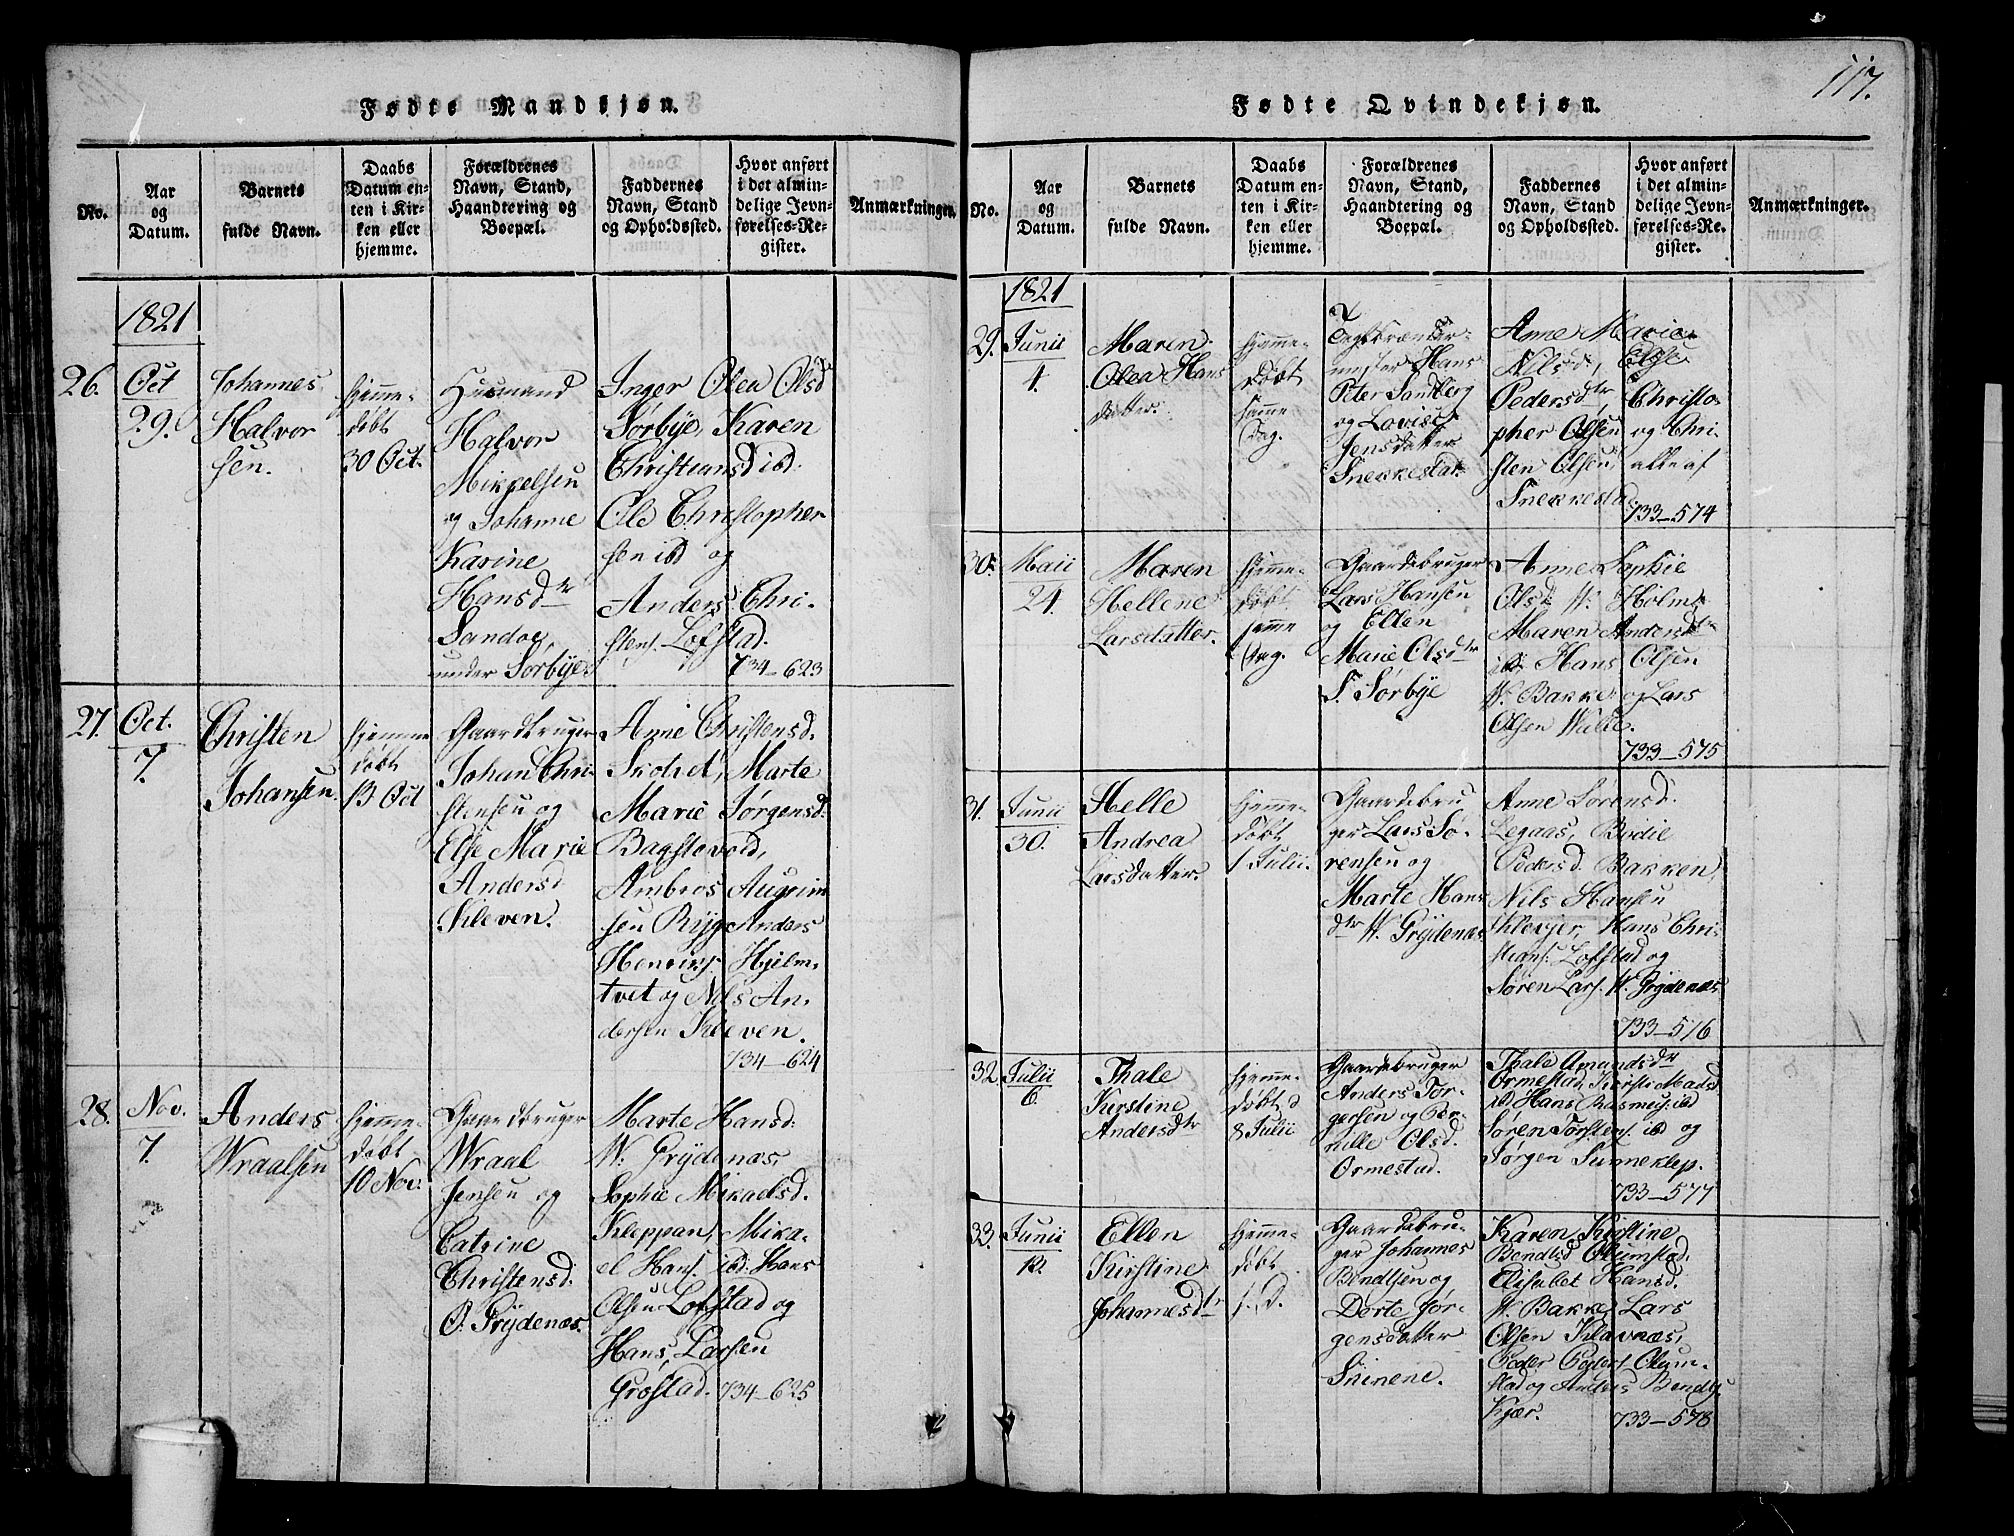 Fødte Mandkjøn.
No.
Aar
og
Datum.
Barnets
fulde Navn.
Daabs
Datum en-
ten i Kir-
ken eller
hjemme.
Forældrenes
Navn, Stand,
Haandtering og
Boepæl.
Faddernes
Navn, Stand
og Opholdssted.
Hvor anført
i det almin-
delige Jevn-
førelses-Re-
gister.
Anmærkninger.
1821
26.
Oct
29.
Johannes
Halvor
sen.
hjemme-
døbt
30 Oct.
Husmand
Halvor
Mikkelsen
og Johanne
Karine
Hansdtr
Sandoe,
under Sørbye
Inger Olea Olsd
Sørbye, Karen
Christiansd ibd.
Ole Christopher
sen ibd og
Anders Chri-
stens. Lofstad.
734-623
27.
Oct.
7.
Christen
Johansen.
hjemme
døbt
13 Oct
Gaardbruger
Johan Chri-
stensen og
Else Marie
Andersd
Kleven.
Anne Christensd.
Skotvet, Marte
Marie Jørgensd.
Bagstevold,
Ambros Augrim
sen Ryg Anders
Henriks. Hjelm-
tvet og Nils An-
dersen Kleven.
734-624
28.
Nov.
7.
Anders
Wraalsen
hjemme-
døbt
10 Nov.
Gaardbruger
Wraal
Jensen og
Catrine
Christensd.
O. Grydenæs.
Marte Hansd.
W. Grydenæs,
Sophie Mikaelsd.
Kleppan, Mika-
el Hans. ibd. Hans
Olsen Lofstad og
Hans Larsen
Grøstad. 734-625
117.
Fødte Qvindekjøn.
No.
Aar
og
Datum.
Barnets
fulde Navn.
Daabs
Datum en-
ten i Kir-
ken eller
hjemme.
Forældrenes
Navn, Stand,
Haandtering og
Boepæl.
Faddernes
Navn, Stand
og Opholdssted.
Hvor anført
i det almin-
delige Jevn-
førelses-Re-
gister.
Anmærkninger.
1821
29.
Junii
4.
Maren
Olea Hans
datter.
hjemme-
døbt
samme
Dag.
mester Hans
Peter Sandberg
og Lovise
Jensdatter
Snekkestad
Anne Marie
Nilsd, Else
Pedersdtr, Christo-
pher Olsen og Chri-
sten Olsen, alle af
Snekkestad
733-574
30.
Maii
24.
Maren
Hellene
Larsdatter.
hjemme-
døbt
samme
Dag.
Gaardebruger
Lars Hansen
og Ellen
Marie Olsdtr
S. Sørbye
Anne Sophie
Olsd W. Holm,
Maren Andersdtr
ibd. Hans Olsen
W. Bakke og Lars
Olsen Walle.
733-575
31.
Junii
30.
Helle
Andrea
Larsdatter.
hjemme-
døbt
1 Julii.
Gaardebru
ger Lars Sø-
rensen og
Marte Hans
dtr W. Grydenæs
Anne Sorensd.
Legaas, Bodie
Pedersd. Bakken,
Nils Hansen
Klevjer, Hans Chri-
stians. Lofstad og
Søren Lars. W. Grydenæs
733-576
32.
Julii
6.
Thale
Kirstine
Andersdtr
hjemme-
døbt d
8 Julii
Gaardebruger
Anders Tor-
gersen og Per-
nille Olsd.
Ormestad.
Thale Amundsdtr
Ormestad, Kirsti Madsd
ibd Hans Rasmus. ibd
Søren Torstens. ibd og
Jørgen Sunneklep.
733-577
33.
Junii
12.
Ellen
Kirstine
Johannesdtr
hjemme-
døbt
s. D.
Gaardebru-
ger Johannes
Bendtsen og
Dorte Jør-
gensdatter
Sninene.
Karen Kirstine
Bendtsd Olumstad.
Elisabet Hansd.
W. Bakke, Lars
Olsen Klavnæs,
Peder Peders. Olum-
stad og Anders Bendts
Kjær.
733-578